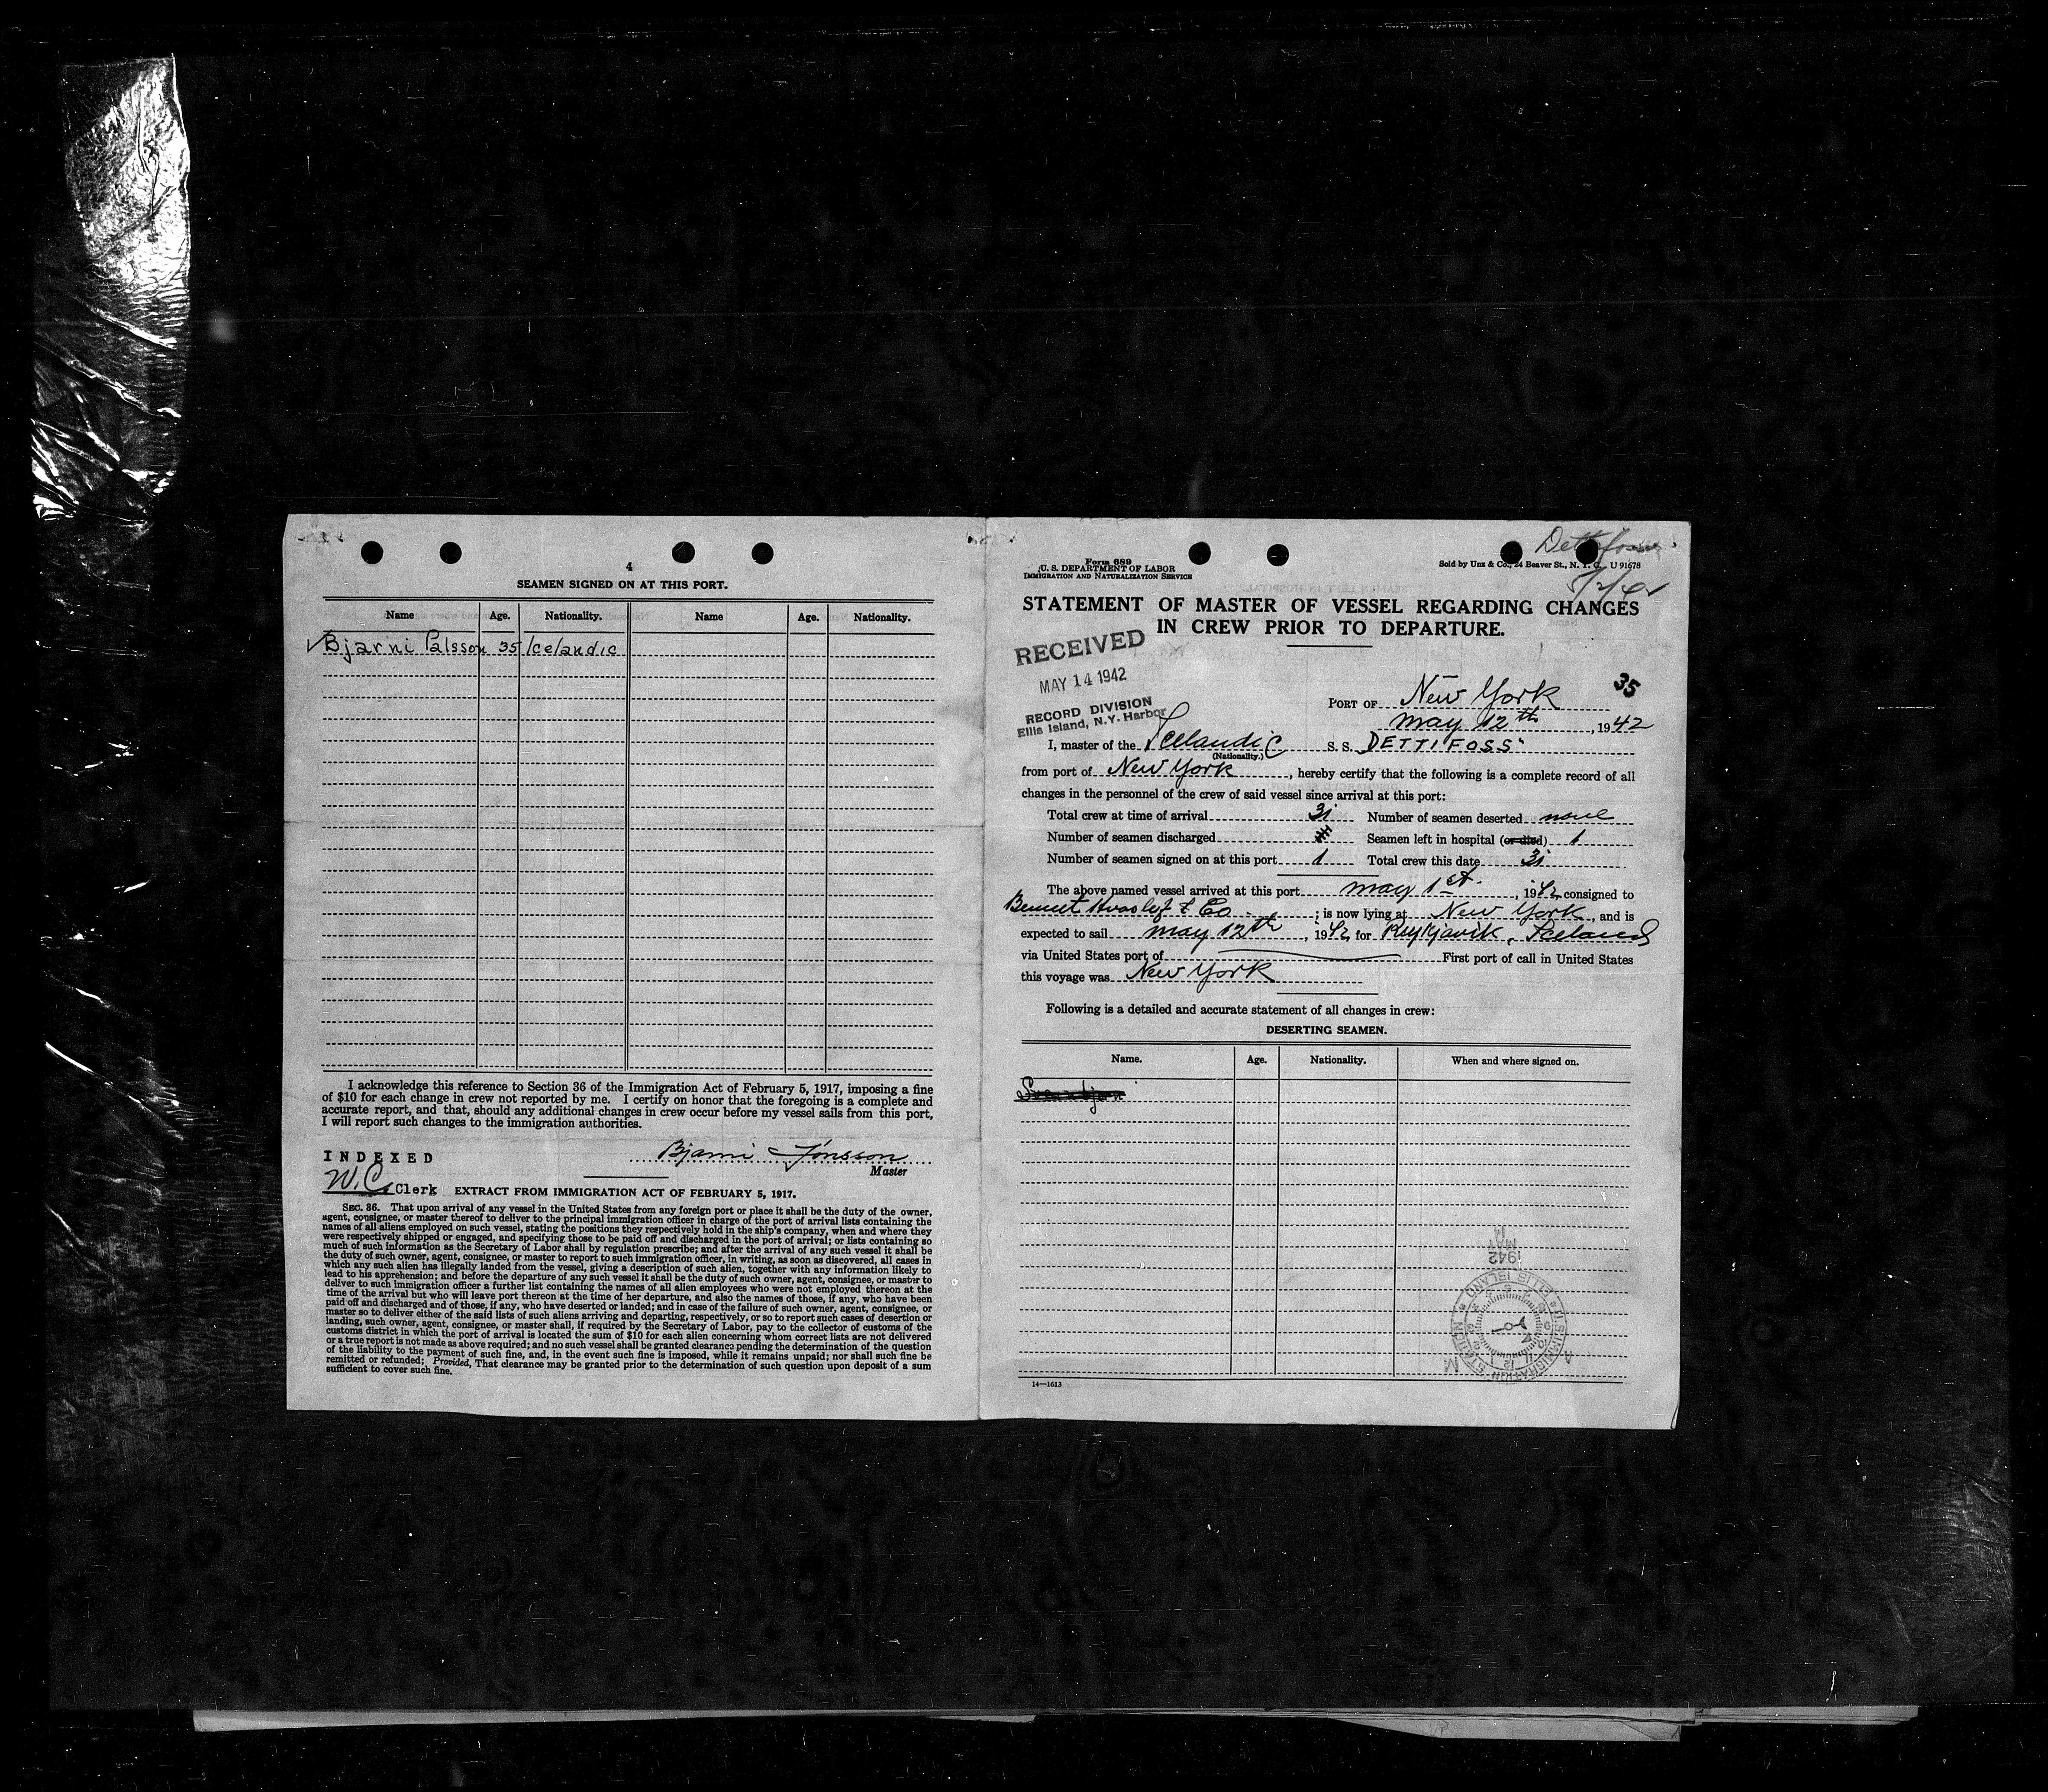 4
SEAMEN SIGNED ON AT THIS PORT.
Name Age. Nationality. Name Age. Nationality.
Bjarni Pálsson 35 Icelandic
I acknowledge this reference to Section 36 of the Immigration Act of February 5, 1917, imposing a fine
of $10 for each change in crew not reported by me. I certify on honor that the foregoing is a complete and
accurate report, and that, should any additional changes in crew occur before my vessel sails from this port,
I will report such changes to the immigration authorities.
INDEXED
Bjarni Jónsson
Master
W.C. Clerk
EXTRACT FROM IMMIGRATION ACT OF FEBRUARY 5, 1917.
SEC. 36. That upon arrival of any vessel in the United States from any foreign port or place it shall be the duty of the owner,
agent, consignee, or master thereof to deliver to the principal immigration officer in charge of the port of arrival lists containing the
names of all aliens employed on such vessel, stating the positions they respectively hold in the ship's company, when and where they
were respectively shipped or engaged, and specifying those to be paid off and discharged in the port of arrival; or lists containing so
much of such information as the Secretary of Labor shall by regulation prescribe; and after the arrival of any such vessel it shall be
the duty of such owner, agent, consignee, or master to report to such immigration officer, in writing, as soon as discovered, all cases in
which any such alien has illegally landed from the vessel, giving a description of such alien, together with any information likely to
lead to his apprehension; and before the departure of any such vessel it shall be the duty of such owner, agent, consignee, or master to
deliver to such immigration officer a further list containing the names of all alien employees who were not employed thereon at the
time of the arrival but who will leave port thereon at the time of her departure, and also the names of those, if any, who have been
paid off and discharged and of those, if any, who have deserted or landed; and in case of the failure of such owner, agent, consignee, or
master so to deliver either of the said lists of such aliens arriving and departing, respectively, or so to report such cases of desertion or
landing, such owner, agent, consignee, or master shall, if required by the Secretary of Labor, pay to the collector of customs of the
customs district in which the port of arrival is located the sum of $10 for each alien concerning whom correct lists are not delivered
or a true report is not made as above required; and no such vessel shall be granted clearance pending the determination of the question
of the liability to the payment of such fine, and, in the event such fine is imposed, while it remains unpaid; nor shall such fine be
remitted or refunded; Provided, That clearance may be granted prior to the determination of such question upon deposit of a sum
sufficient to cover such fine.
Dettifoss
Form 689
U. S. DEPARTMENT OF LABOR
IMMIGRATION AND NATURALIZATION SERVICE
Sold by Unz & Co., 24 Beaver St., N. Y. C. U 91678
STATEMENT OF MASTER OF VESSEL REGARDING CHANGES
IN CREW PRIOR TO DEPARTURE.
RECEIVED
MAY 14 1942
RECORD DIVISION
Ellis Island, N.Y. Harbor
35
PORT OF New York
May 12th, 1942
I, master of the Icelandic S. S. DETTIFOSS
(Nationality.)
from port of New York, hereby certify that the following is a complete record of all
changes in the personnel of the crew of said vessel since arrival at this port:
Total crew at time of arrival 31 Number of seamen deserted none
Number of seamen discharged Seamen left in hospital (or died) 1
Number of seamen signed on at this port 1 Total crew this date 31
The above named vessel arrived at this port May 1st, 1942, consigned to
Bennet Hvoslef & Co; is now lying at New York, and is
expected to sail May 12th, 1942, for Reykjavik, Iceland
via United States port of First port of call in United States
this voyage was New York
Following is a detailed and accurate statement of all changes in crew:
DESERTING SEAMEN.
Name. Age. Nationality. When and where signed on.
MAY
1942
U.S. IMMIGRATION
ELLIS ISLAND
14—1613